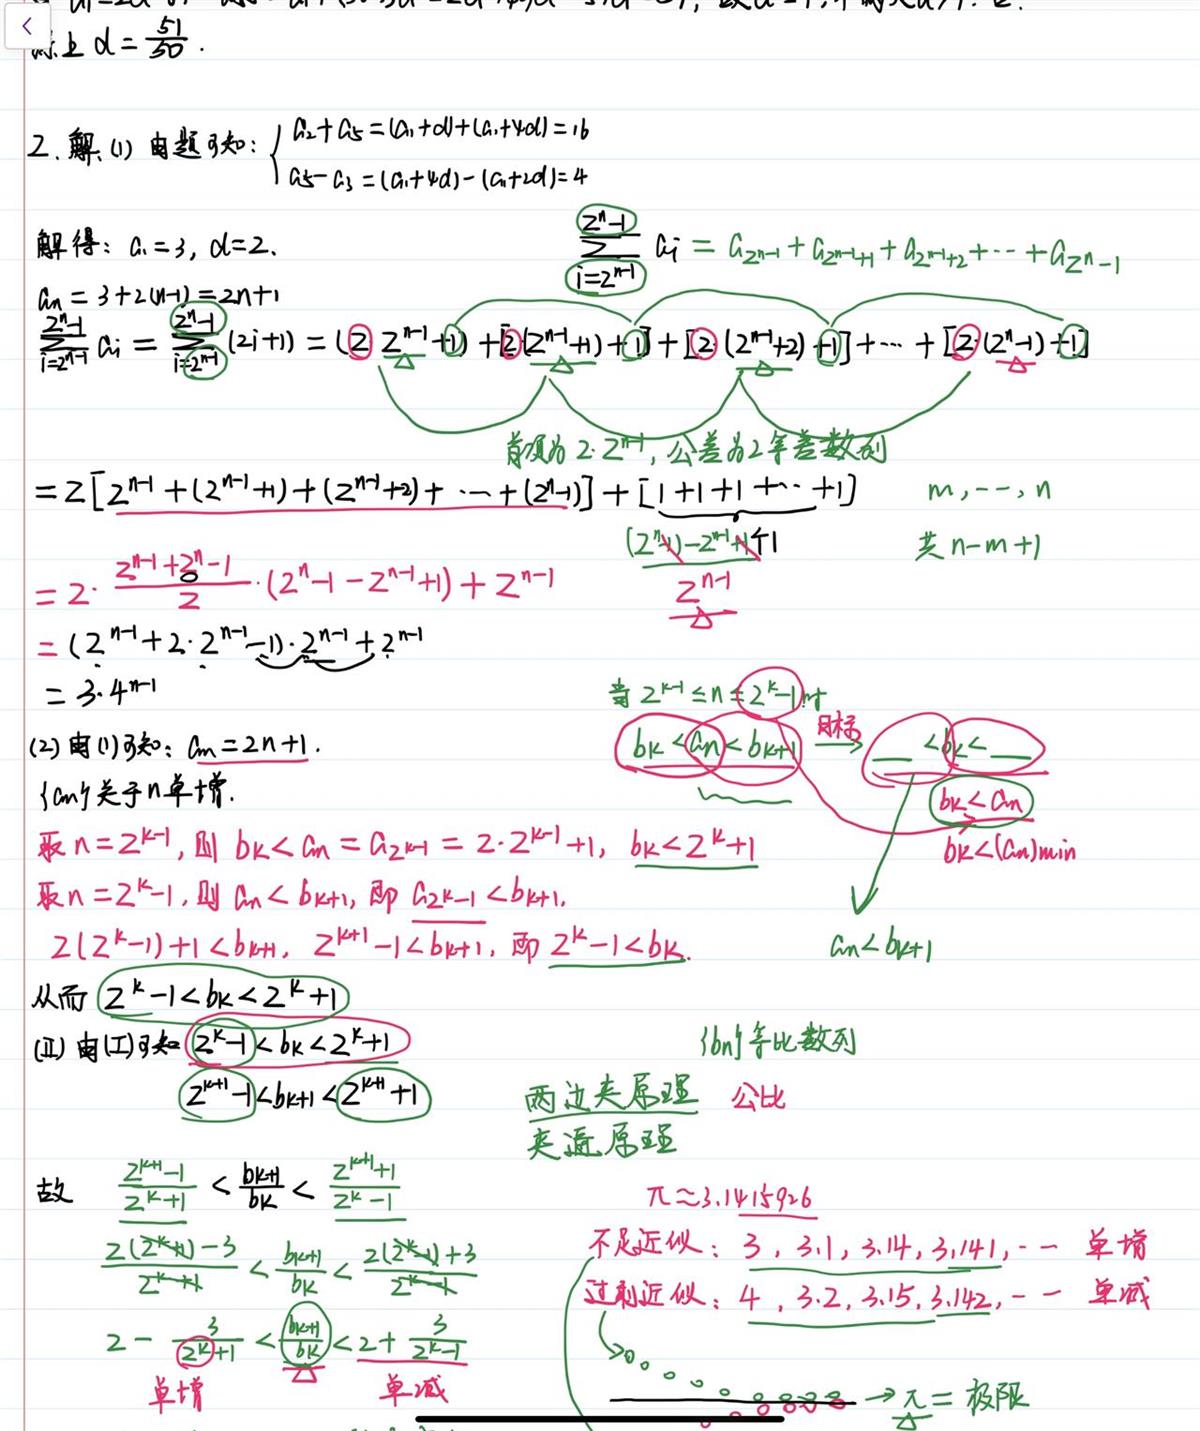 综上 d = 51/50 .
2. 解:(1) 由题可知: { a₂+a₅=(a₁+d)+(a₁+4d)=16
a₅-a₃=(a₁+4d)-(a₁+2d)=4
解得: a₁=3, d=2.
∑_{i=2^{n-1}}^{2^n-1} aᵢ = a_{2^{n-1}} + a_{2^{n-1}+1} + a_{2^{n-1}+2} + ··· + a_{2^n-1}
aₙ = 3+2(n-1) = 2n+1
∑_{i=2^{n-1}}^{2^n-1} aᵢ = ∑_{i=2^{n-1}}^{2^n-1} (2i+1) = (2·2^{n-1}+1) + [2(2^{n-1}+1)+1] + [2(2^{n-1}+2)+1] + ··· + [2·(2^n-1)+1]
首项为 2·2^{n-1}, 公差为2等差数列
= 2[2^{n-1}+(2^{n-1}+1)+(2^{n-1}+2)+ ··· +(2^n-1)] + [1+1+1+···+1]
m, ---, n
(2^n-1)-2^{n-1}+1个1
共 n-m+1
2^{n-1}
= 2· (2^{n-1}+2^n-1)/2 ·(2^n-1-2^{n-1}+1) + 2^{n-1}
= (2^{n-1}+2·2^{n-1}-1)·2^{n-1}+2^{n-1}
= 3·4^{n-1}
当 2^{k-1} ≤ n ≤ 2^k-1 时
(2) 由(1)可知: aₙ=2n+1.
b_k < aₙ < b_{k+1} 目标→ __ < b_k < __
{aₙ}关于n单增.
b_k < aₙ
取 n=2^{k-1}, 则 b_k < aₙ = a_{2^{k-1}} = 2·2^{k-1}+1, b_k < 2^k+1
b_k < (aₙ)min
取 n=2^k-1, 则 aₙ < b_{k+1}, 即 a_{2^k-1} < b_{k+1}.
2(2^k-1)+1 < b_{k+1}, 2^{k+1}-1 < b_{k+1}, 即 2^k-1 < b_k.
aₙ < b_{k+1}
从而 2^k-1 < b_k < 2^k+1
(Ⅱ) 由(Ⅰ)可知 2^k-1 < b_k < 2^k+1
{bₙ}等比数列
2^{k+1}-1 < b_{k+1} < 2^{k+1}+1
两边夹原理 公比
夹逼原理
故 (2^{k+1}-1)/(2^k+1) < b_{k+1}/b_k < (2^{k+1}+1)/(2^k-1)
π≈3.1415926
不足近似: 3, 3.1, 3.14, 3.141, --- 单增
(2(2^k+1)-3)/(2^k+1) < b_{k+1}/b_k < (2(2^k-1)+3)/(2^k-1)
过剩近似: 4, 3.2, 3.15, 3.142, --- 单减
2 - 3/(2^k+1) < b_{k+1}/b_k < 2 + 3/(2^k-1)
单增 单减
→π = 极限